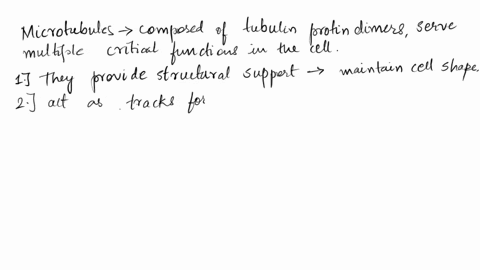 Microtubules → composed of tubulin protin dimers, serve
multiple critical functions in the cell.
1] They provide structural support → maintain cell shape.
2.] act as tracks for